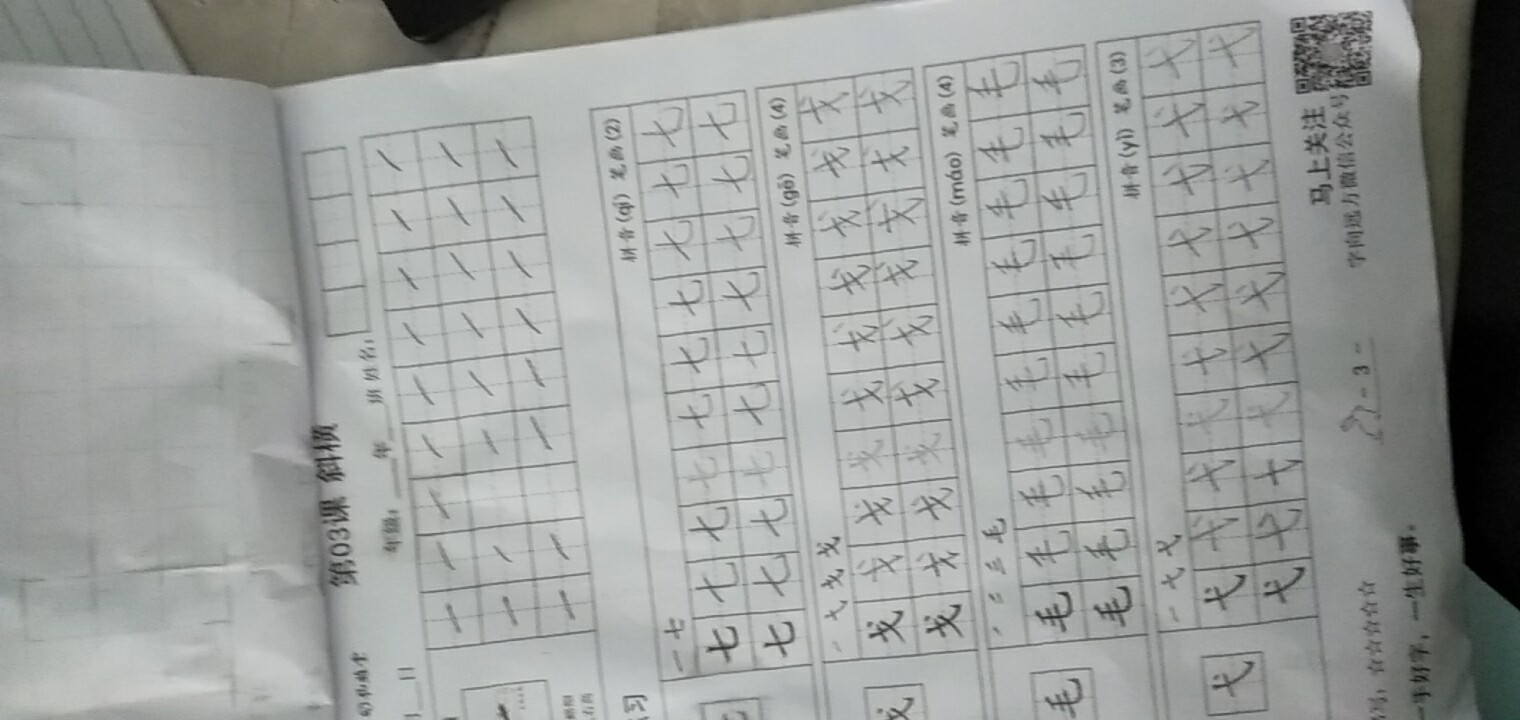 第03课 斜横
年级：____年____班 姓名：
一 七
拼音(qī) 笔画(2)
七 七 七 七 七 七 七 七 七 七
七 七 七 七 七 七 七 七 七 七
一 七 戈 戈
拼音(gē) 笔画(4)
戈 戈 戈 戈 戈 戈 戈 戈 戈 戈
戈 戈 戈 戈 戈 戈 戈 戈 戈 戈
毛
拼音(máo) 笔画(4)
毛 毛 毛 毛 毛 毛 毛 毛 毛 毛
毛 毛 毛 毛 毛 毛 毛 毛 毛 毛
毛
一 七 弋
拼音(yì) 笔画(3)
弋 弋 弋 弋 弋 弋 弋 弋 弋 弋
弋 弋 弋 弋 弋 弋 弋 弋 弋 弋
弋
☆☆☆☆☆
马上关注
字向远方微信公众号
一手好字，一生好事。